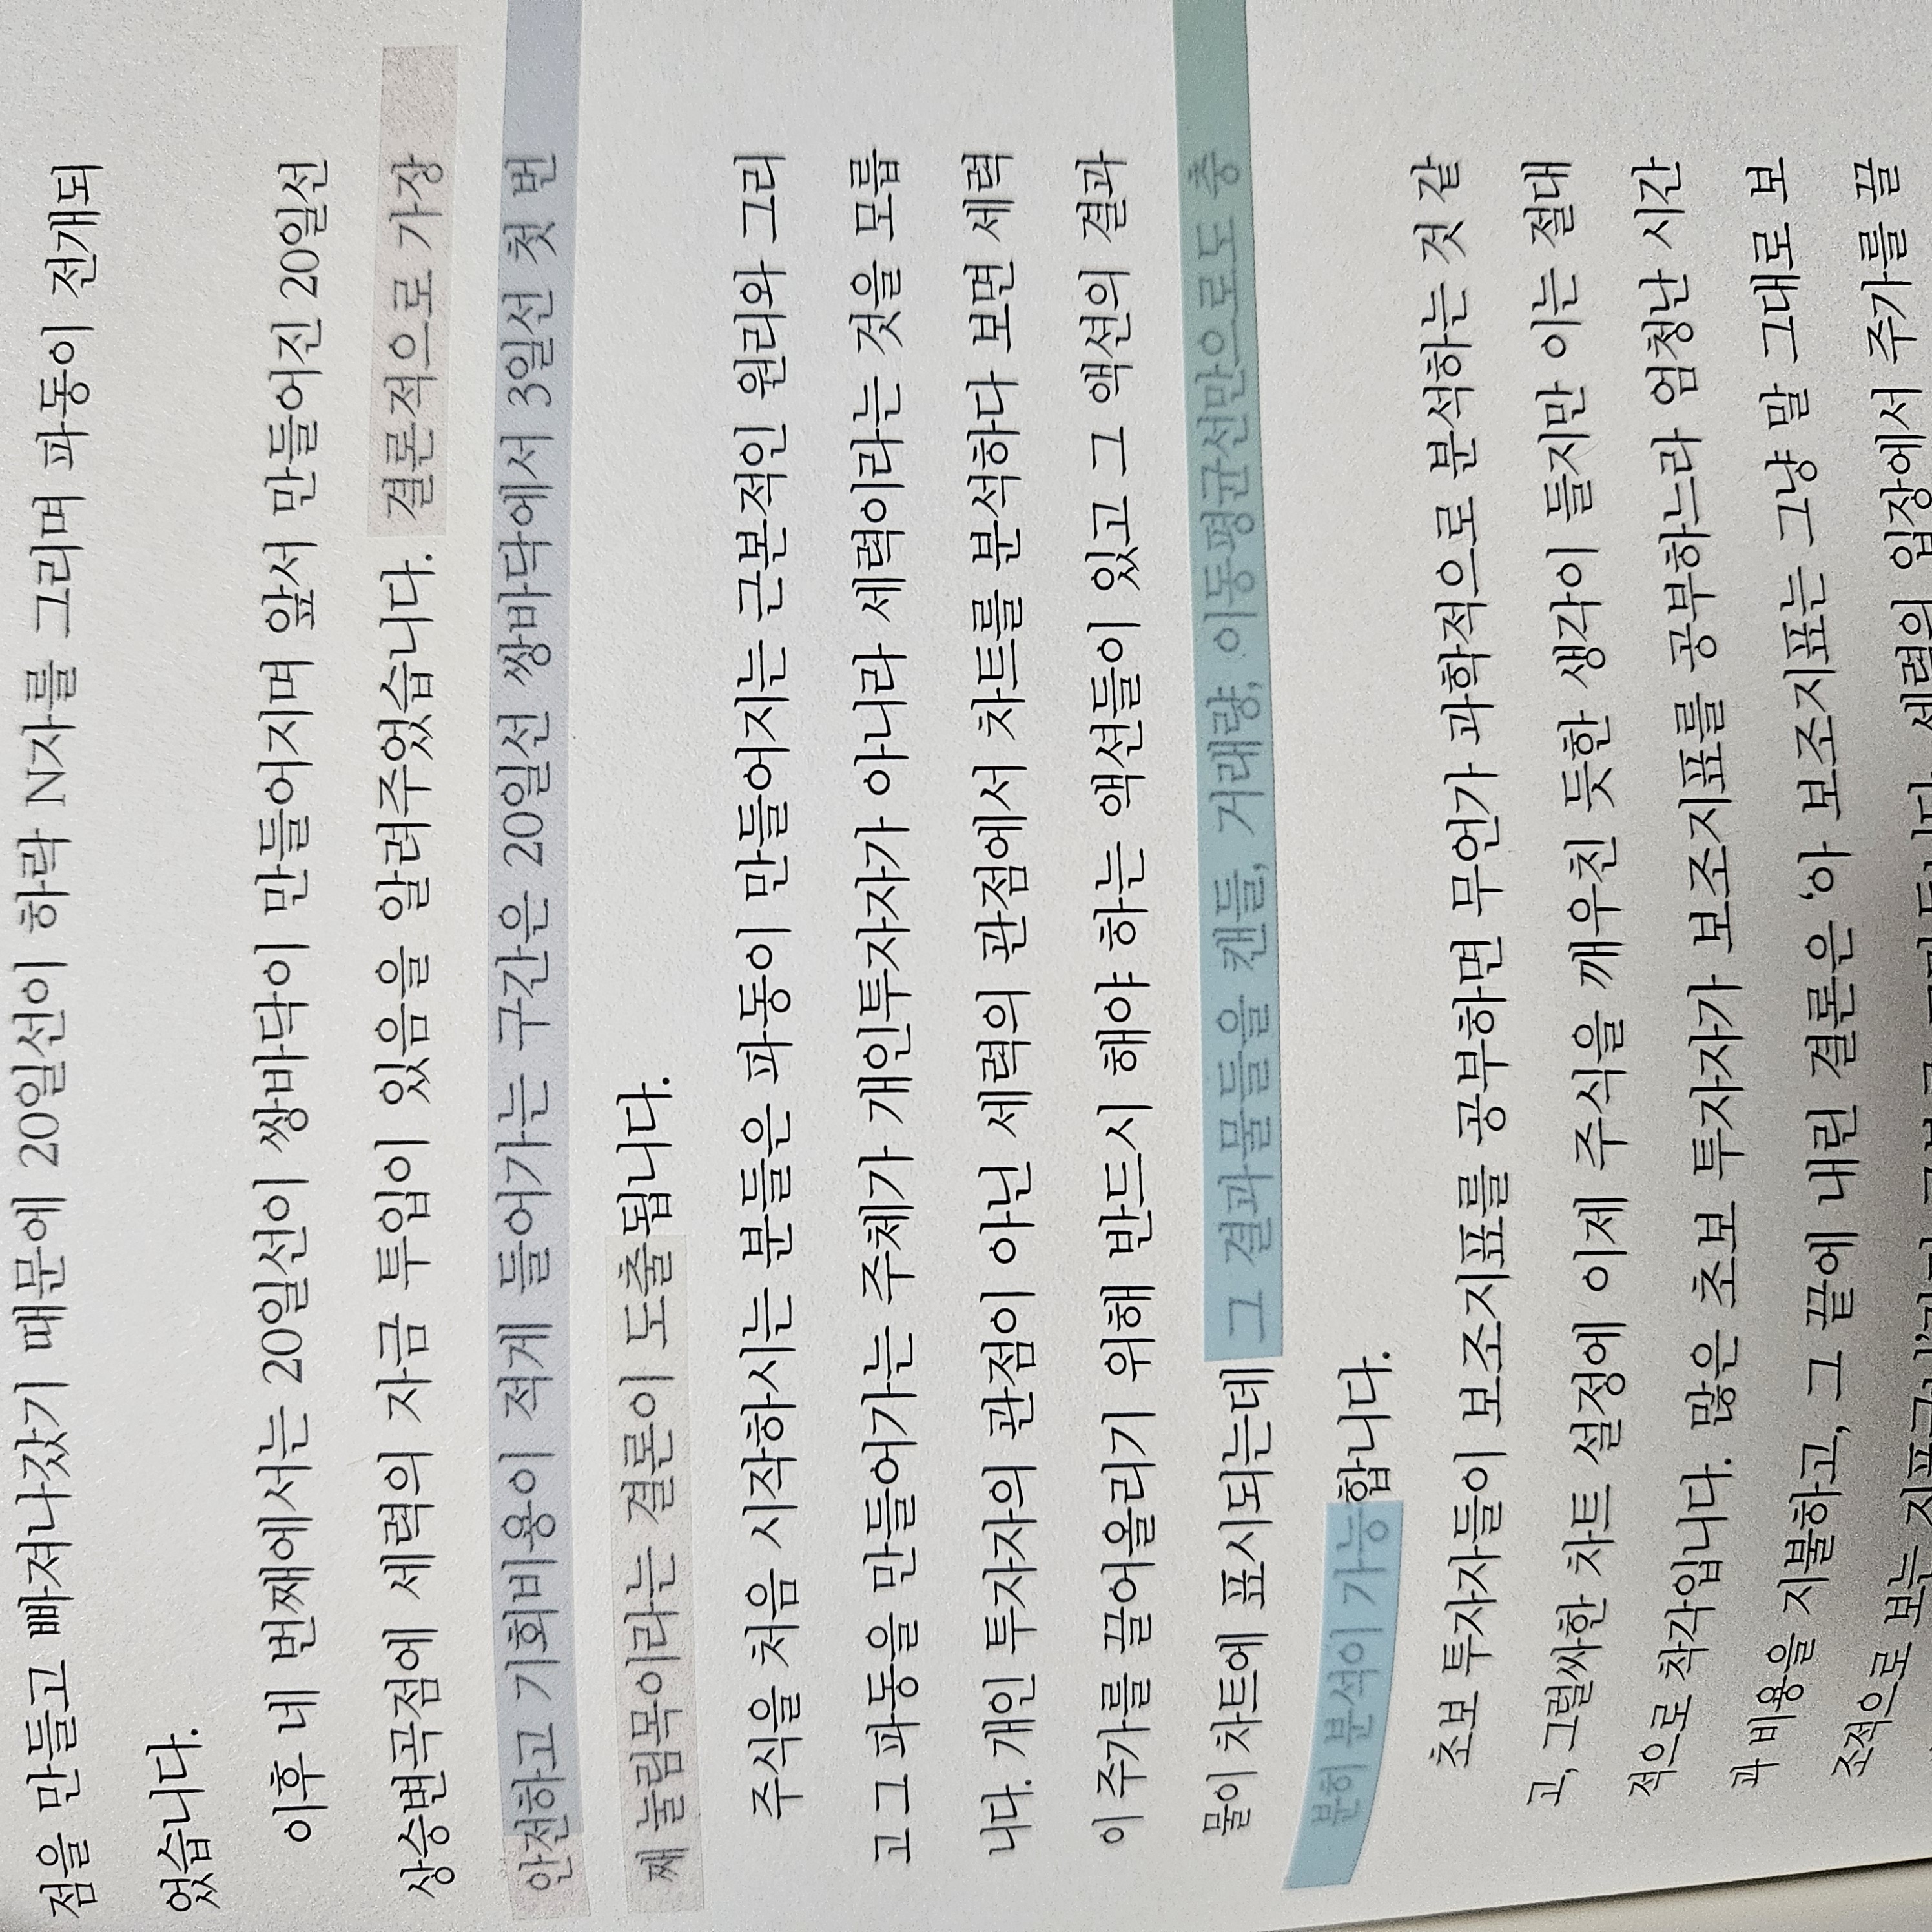 점을 만들고 빠져나갔기 때문에 20일선이 하락 N자를 그리며 파동이 전개되
었습니다.
이후 네 번째에서는 20일선이 쌍바닥이 만들어지며 앞서 만들어진 20일선
상승변곡점에 세력의 자금 투입이 있음을 알려주었습니다. 결론적으로 가장
안전하고 기회비용이 적게 들어가는 구간은 20일선 쌍바닥에서 3일선 첫 번
째 눌림목이라는 결론이 도출됩니다.
주식을 처음 시작하시는 분들은 파동이 만들어지는 근본적인 원리와 그리
고 그 파동을 만들어가는 주체가 개인투자자가 아니라 세력이라는 것을 모릅
니다. 개인 투자자의 관점이 아닌 세력의 관점에서 차트를 분석하다 보면 세력
이 주가를 끌어올리기 위해 반드시 해야 하는 액션들이 있고 그 액션의 결과
물이 차트에 표시되는데 그 결과물들을 캔들, 거래량, 이동평균선만으로도 충
분히 분석이 가능합니다.
초보 투자자들이 보조지표를 공부하면 무언가 과학적으로 분석하는 것 같
고, 그럴싸한 차트 설정에 이제 주식을 깨우친 듯한 생각이 들지만 이는 절대
적으로 착각입니다. 많은 초보 투자자가 보조지표를 공부하느라 엄청난 시간
과 비용을 지불하고, 그 끝에 내린 결론은 ‘아 보조지표는 그냥 말 그대로 보
조적으로 보는 지표구나’ 세력의 입장에서 주가를 끌